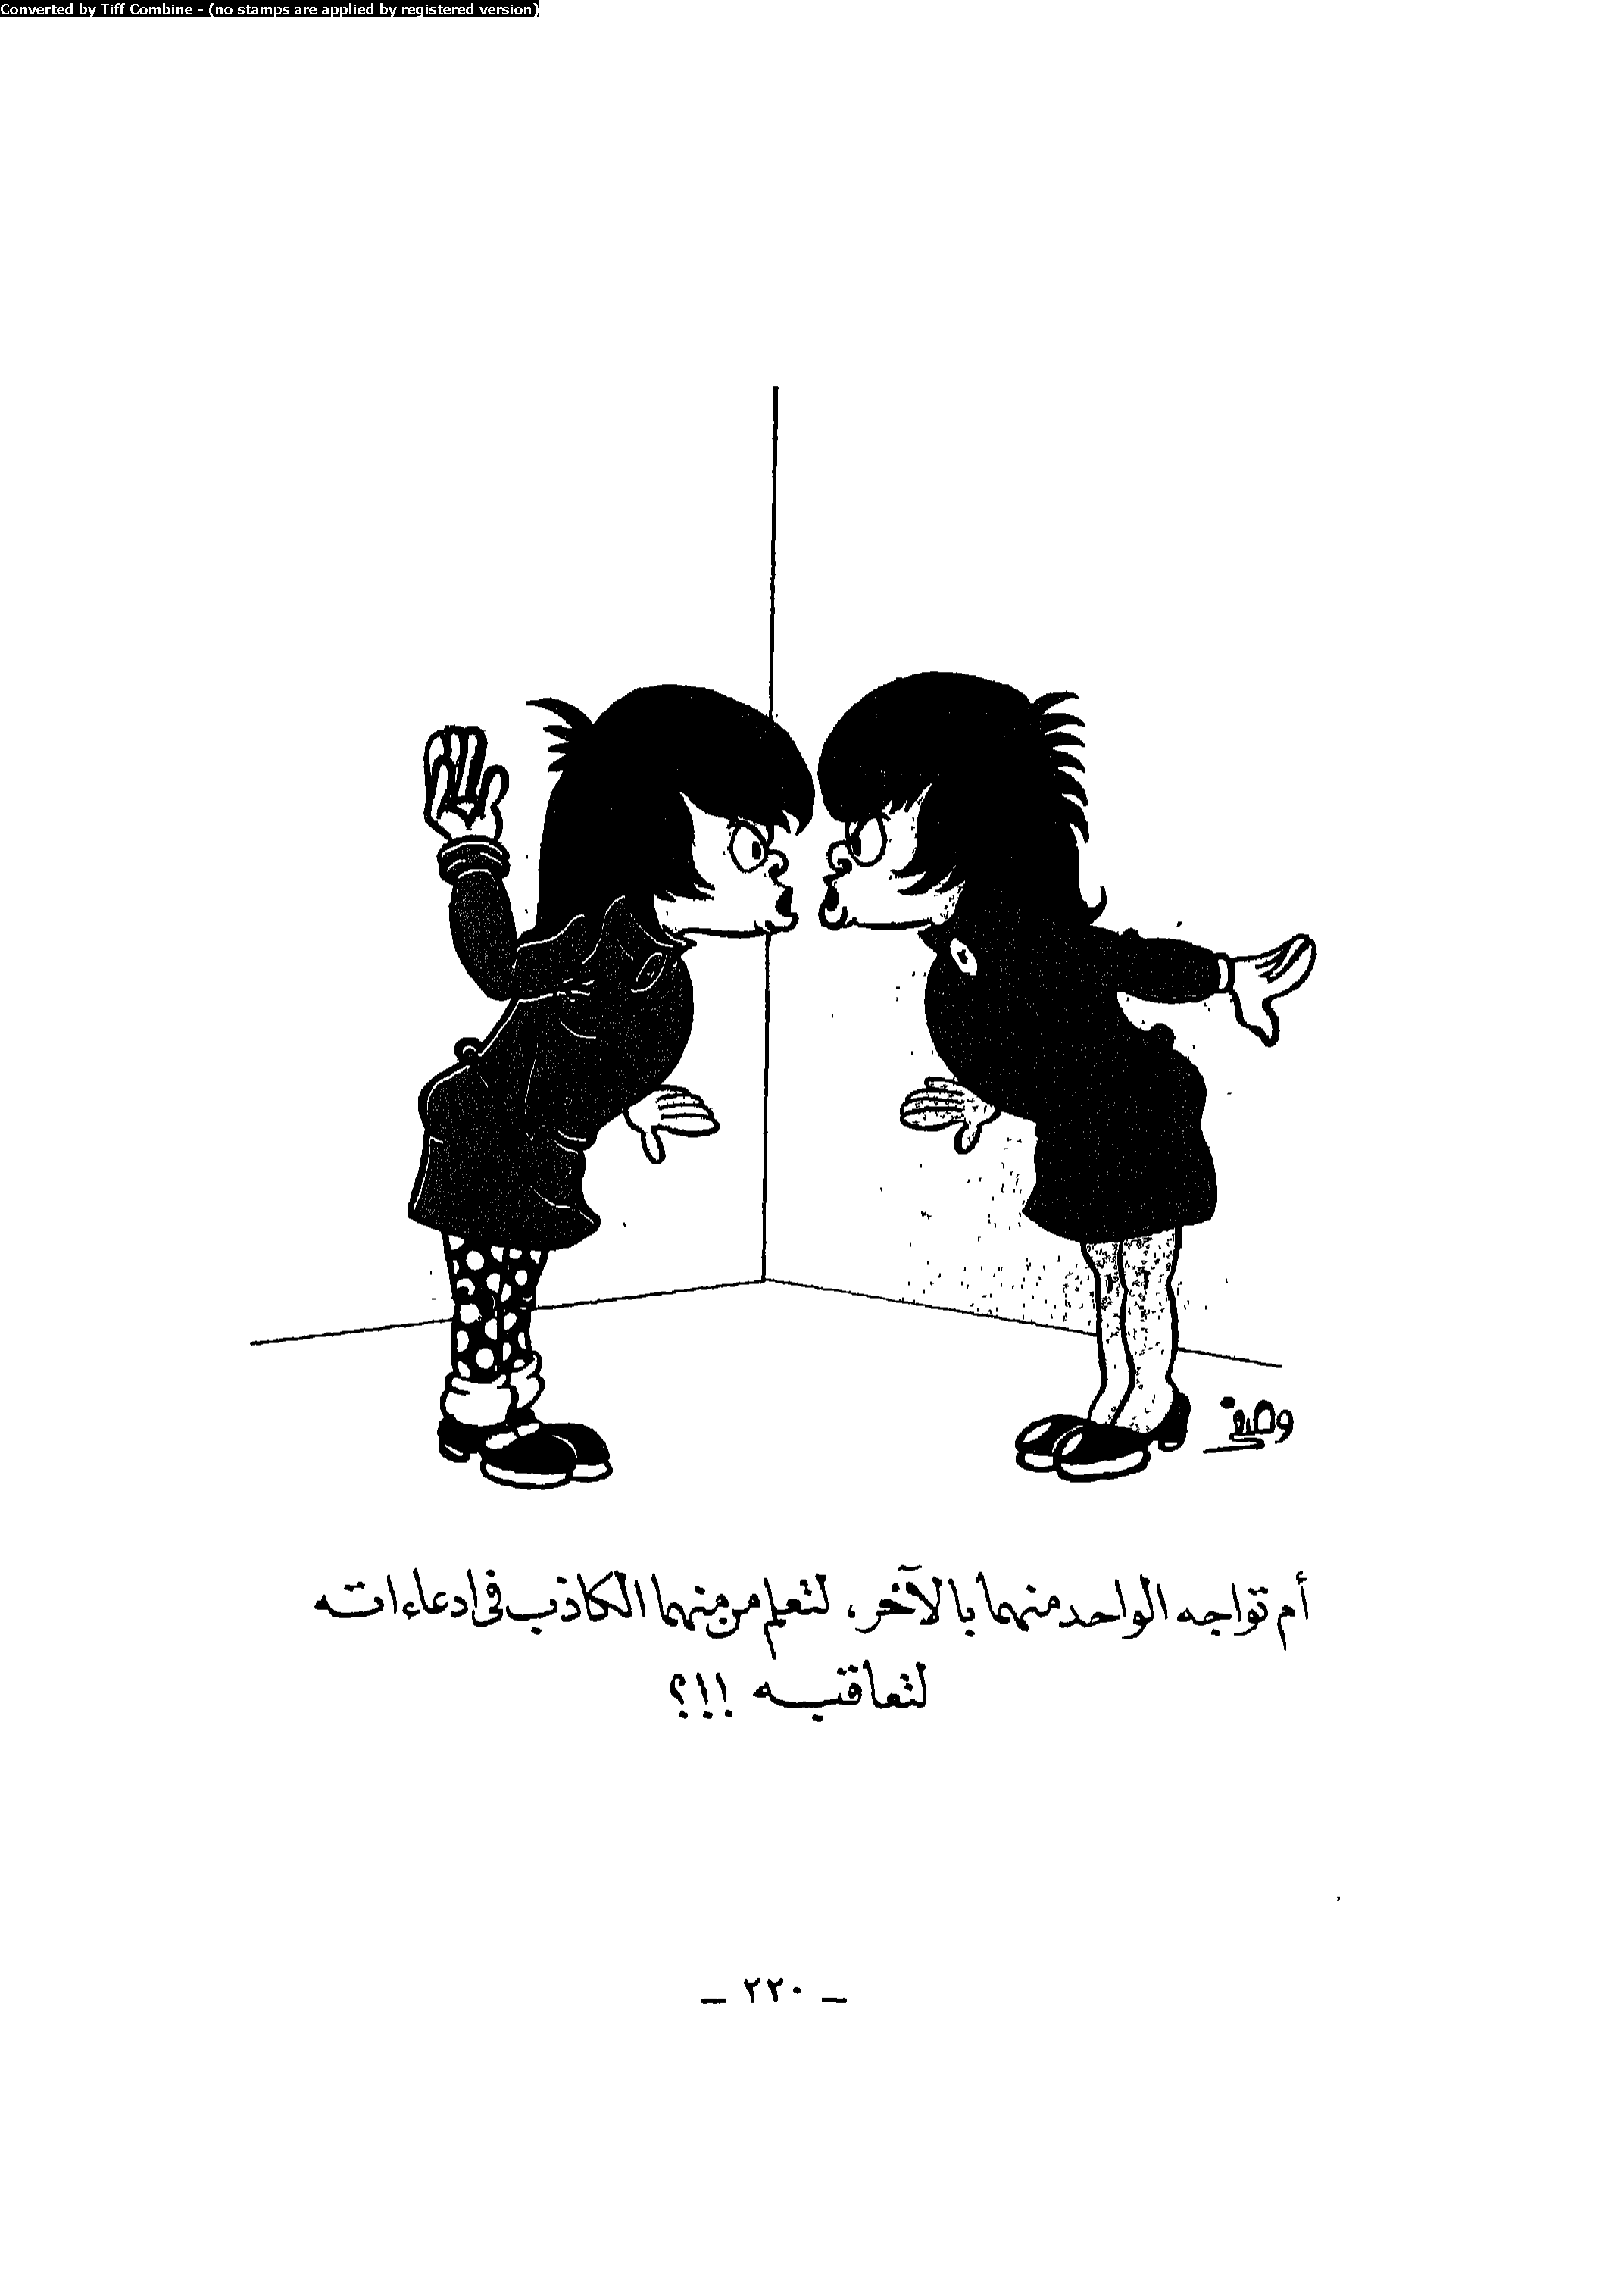 Converted by Tiff Combine - (no stamps are applied by registered version)
وصفى
أم تواجه الواحد منهما بالآخر، لتعلم من منهما الكاذب فى ادعاءاته
لتعاقبه !!؟
– ٢٢٠ –